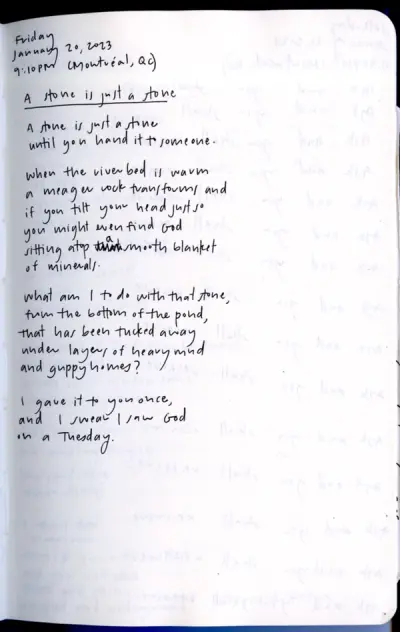 Friday
January 20, 2023
9:10PM (Montréal, QC)
A stone is just a stone
A stone is just a stone
until you hand it to someone.
when the riverbed is warm
a meager rock transforms and
if you tilt your head just so
you might even find God
sitting atop a smooth blanket
of minerals.
what am I to do with that stone,
from the bottom of the pond,
that has been tucked away
under layers of heavy mud
and guppy homes?
I gave it to you once,
and I swear I saw God
on a Tuesday.